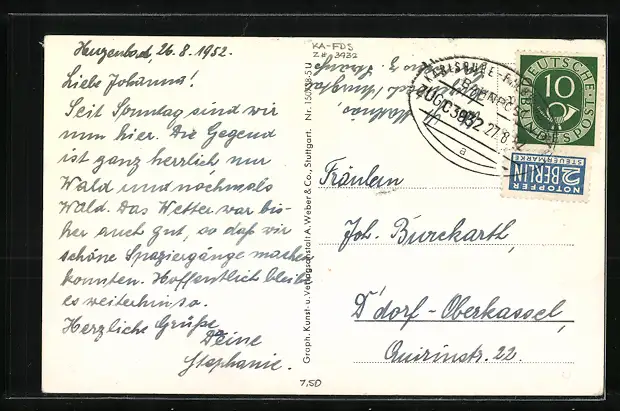 Herzenbad, 26.8.1952.
Liebe Johanna!
Seit Sonntag sind wir
nun hier. Die Gegend
ist ganz herrlich nur
Wald und nochmals
Wald. Das Wetter war bis-
her auch gut, so daß wir
schöne Spaziergänge machen
konnten. Hoffentlich bleibt
es weiterhin so.
Herzliche Grüße
Deine
Stephanie.
KA-FDS
Z# 3932
Graph. Kunst- u. Verlagsanstalt A. Weber & Co., Stuttgart. Nr. 150
7,50
DEUTSCHE POST
10
DEUTSCHE BUNDESPOST
KARLSRUHE
BAHNPOST
ZUG 3932
27.8.52
a
NOTOPFER
2 BERLIN
STEUERMARKE
Fräulein
Joh. Burckarth,
D'dorf-Oberkassel,
Quirinstr. 22.